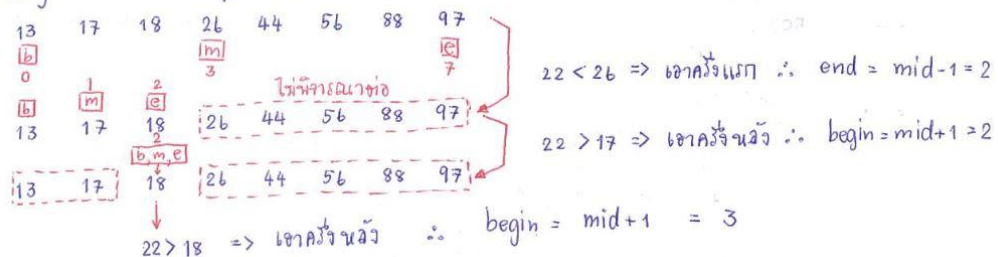 13 17 18 26 44 56 88 97
b m e
0 3 7
22 < 26 => เอาครึ่งแรก ∴ end = mid-1 = 2
1 2
b m e ไม่พิจารณาต่อ
13 17 18 26 44 56 88 97
22 > 17 => เอาครึ่งหลัง ∴ begin = mid+1 = 2
2
b, m, e
13 17 18 26 44 56 88 97
22 > 18 => เอาครึ่งหลัง ∴ begin = mid+1 = 3